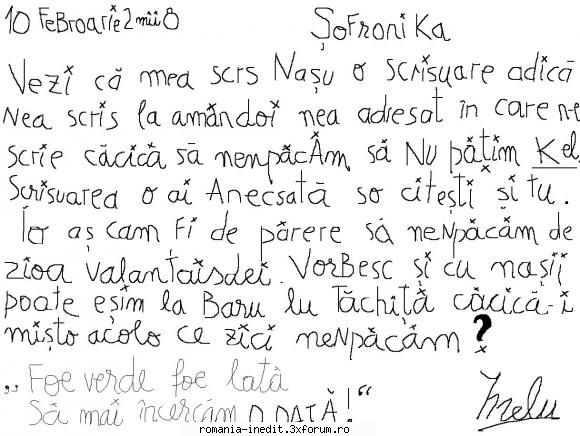 10 FeBroarie 2 mii 8 ȘoFroniKa
Vezi că mea scrs Nașu o scrisuare adică
Nea scris la amândoi nea adresat în care ne
scrie căcică să nenpăcĂm să Nu pățim Kel.
Scrisuarea o ai Anecsată so citești și tu.
Io aș cam Fi de părere să neNpăcăm de
zioa Valantaisdei. VorBesc și cu nașii
poate eșim la Baru lu Tăchiță căcică-i
mișto acolo ce zici neNpăcăm ?
„Foe verde foe lată
Să mai încercăm O DATĂ!“ Inelu
www.romania-inedit.3xforum.ro